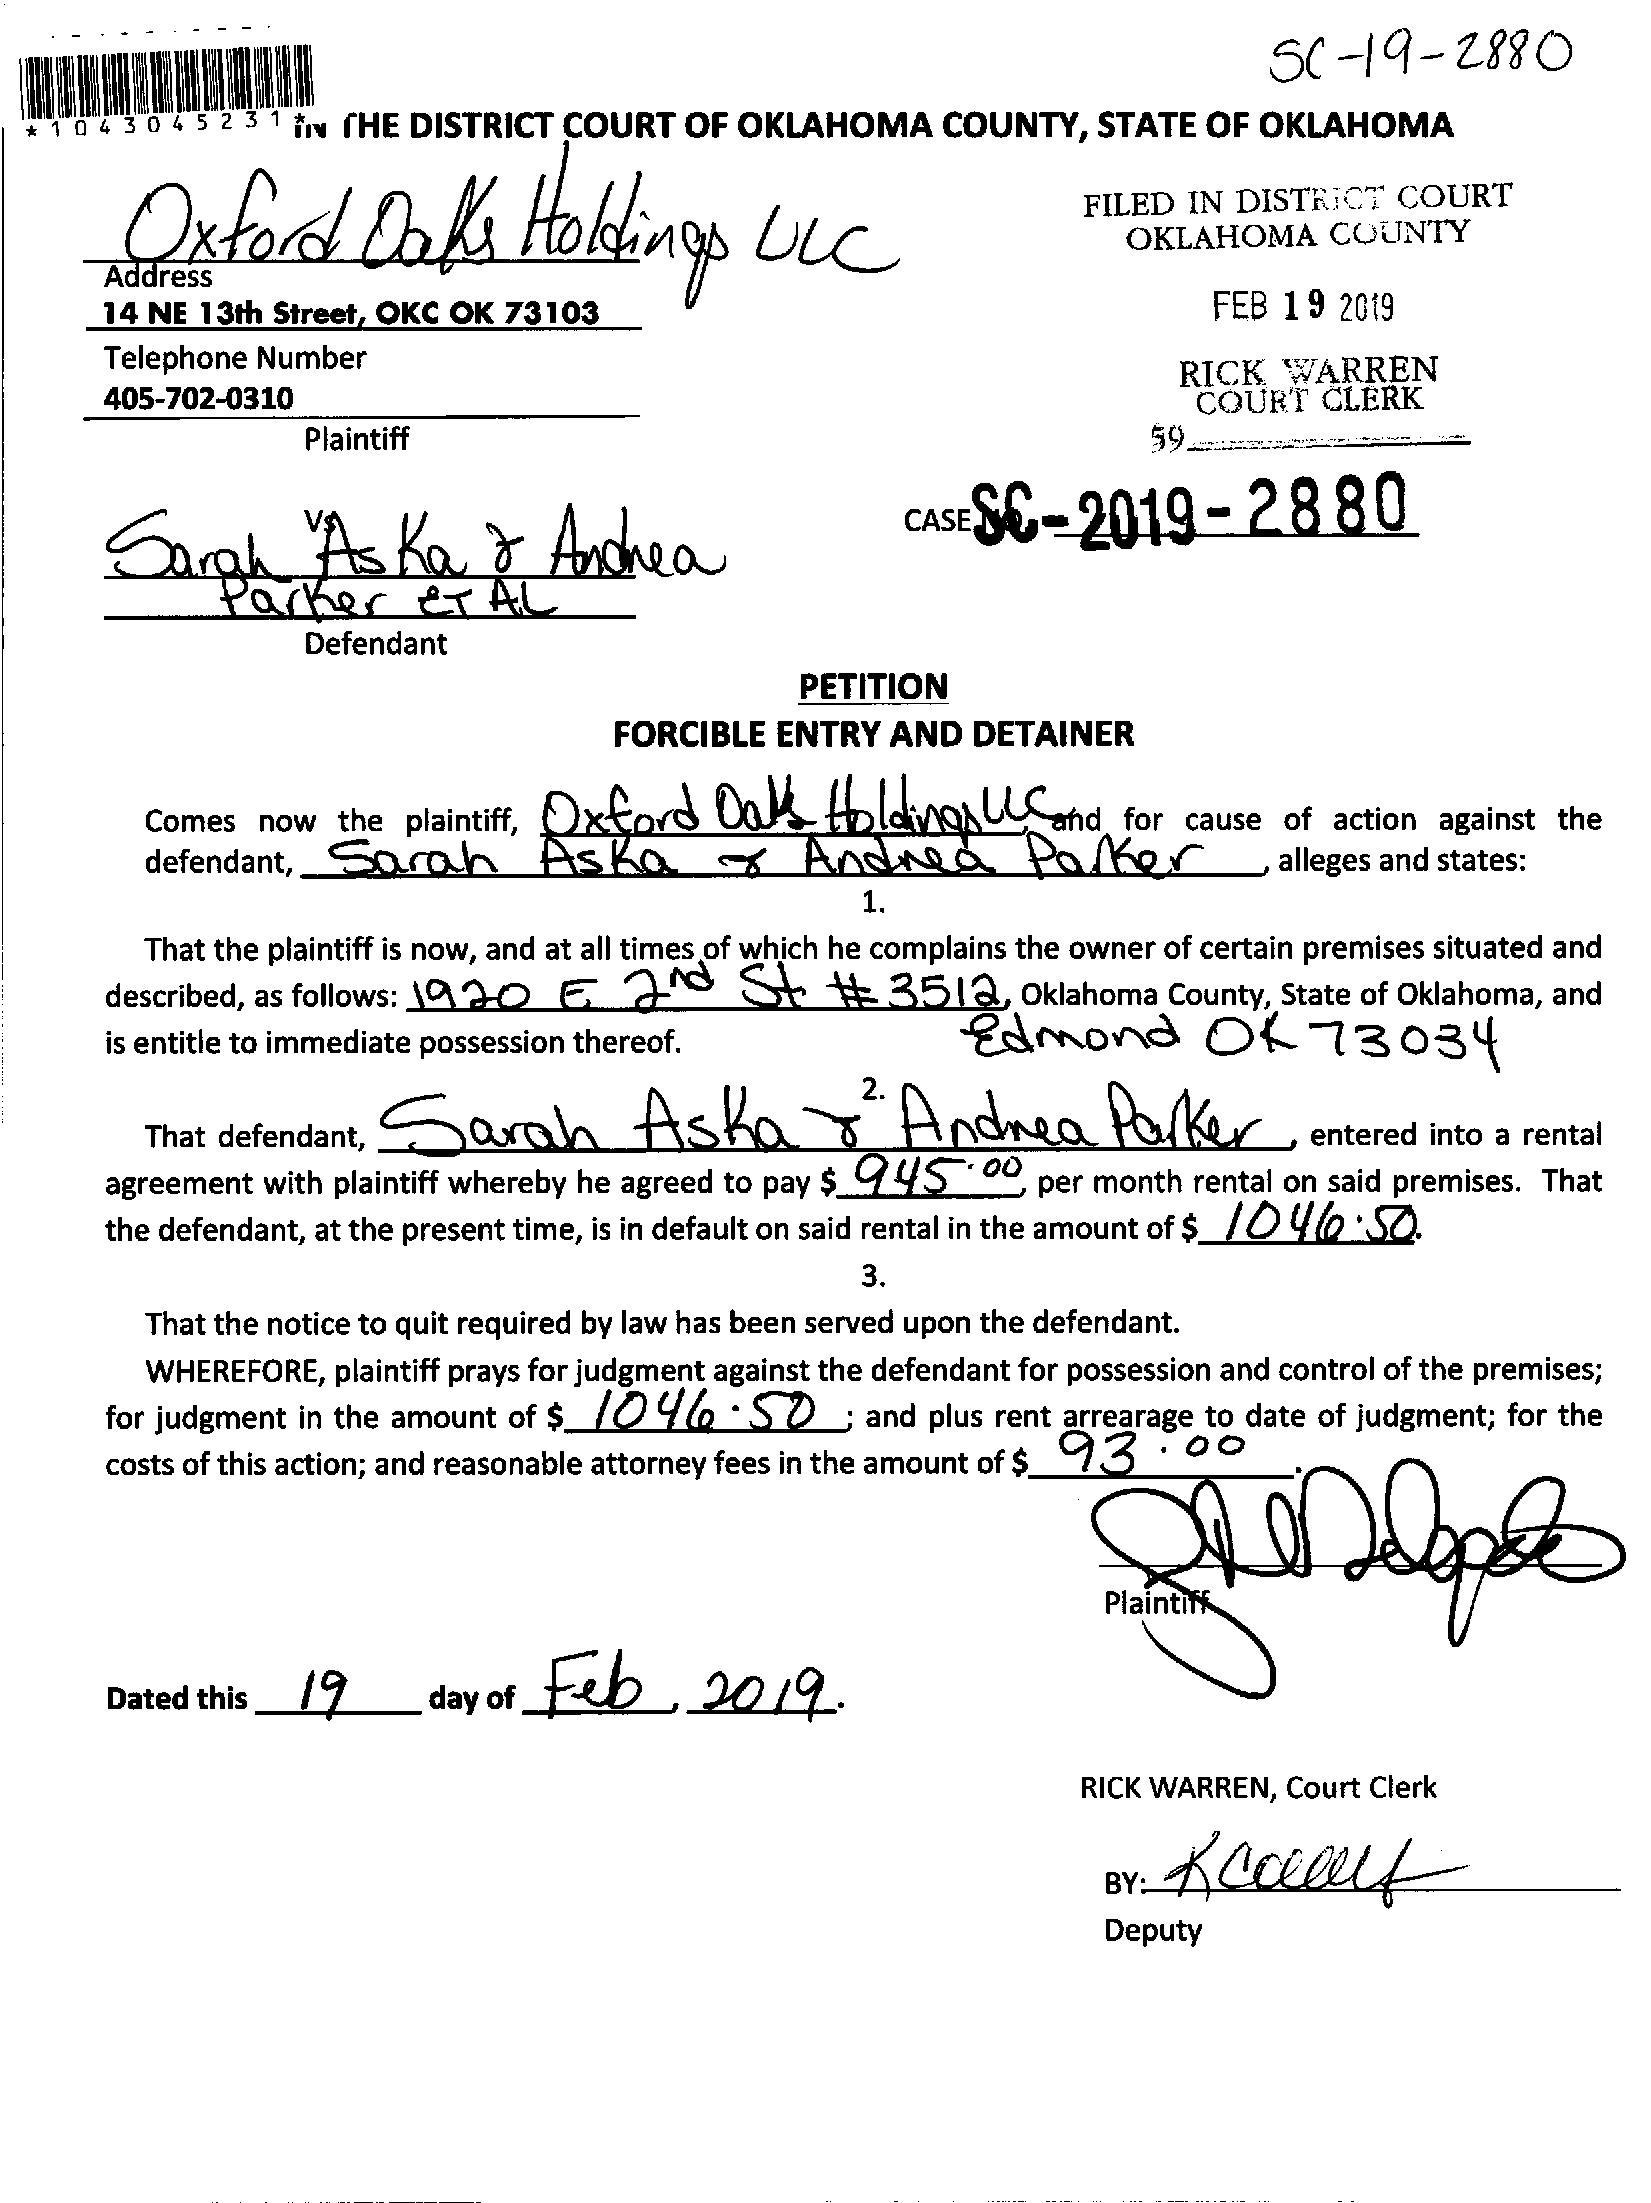 SC-19-2880
*1043045231*
IN THE DISTRICT COURT OF OKLAHOMA COUNTY, STATE OF OKLAHOMA
Oxford Oaks Holdings LLC
Address
14 NE 13th Street, OKC OK 73103
Telephone Number
405-702-0310
Plaintiff
FILED IN DISTRICT COURT
OKLAHOMA COUNTY
FEB 19 2019
RICK WARREN
COURT CLERK
59
CASE SC-2019-2880
vs
Sarah Aska & Andrea
Parker ET AL
Defendant
PETITION
FORCIBLE ENTRY AND DETAINER
Comes now the plaintiff, Oxford Oaks Holdings LLC, and for cause of action against the
defendant, Sarah Aska & Andrea Parker, alleges and states:
1.
That the plaintiff is now, and at all times of which he complains the owner of certain premises situated and
described, as follows: 1920 E 2nd St # 3512, Oklahoma County, State of Oklahoma, and
is entitle to immediate possession thereof. Edmond OK 73034
2.
That defendant, Sarah Aska & Andrea Parker, entered into a rental
agreement with plaintiff whereby he agreed to pay $ 945.00, per month rental on said premises. That
the defendant, at the present time, is in default on said rental in the amount of $ 1046.50.
3.
That the notice to quit required by law has been served upon the defendant.
WHEREFORE, plaintiff prays for judgment against the defendant for possession and control of the premises;
for judgment in the amount of $ 1046.50; and plus rent arrearage to date of judgment; for the
costs of this action; and reasonable attorney fees in the amount of $ 93.00.
Plaintiff
Dated this 19 day of Feb, 2019.
RICK WARREN, Court Clerk
BY:
Deputy